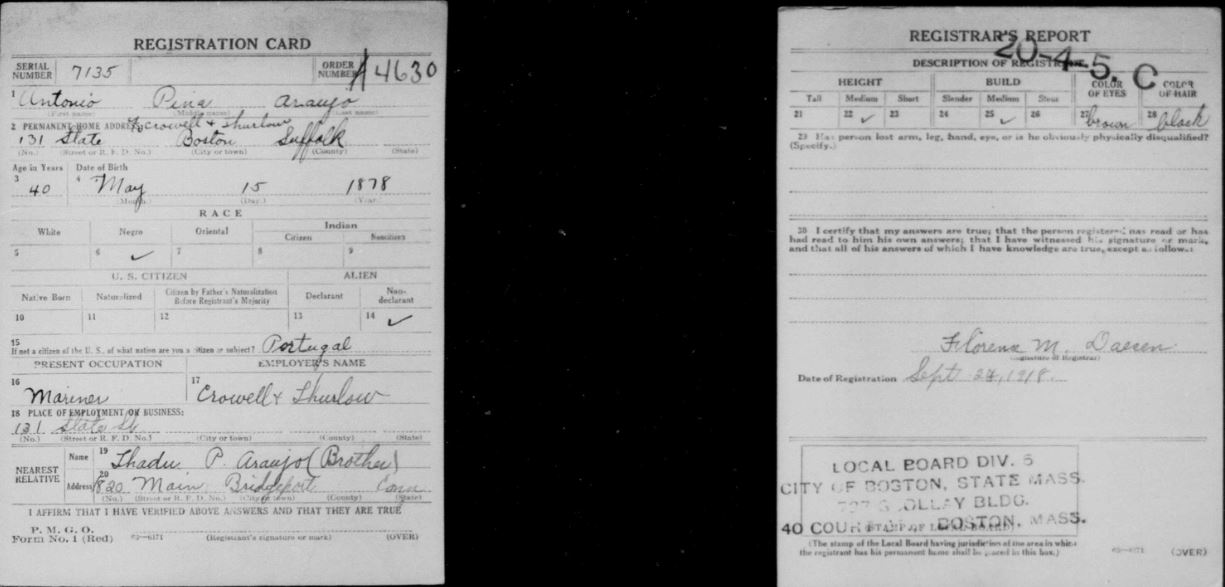 REGISTRATION CARD
SERIAL NUMBER 7135 ORDER NUMBER A 4630
1 Antonio Pina Araujo
(First name) (Middle name) (Last name)
2 PERMANENT HOME ADDRESS: Crowell & Thurlow
131 State Boston Suffolk
(No.) (Street or R. F. D. No.) (City or town) (County) (State)
Age in Years Date of Birth
3 40 4 May 15 1878
(Month) (Day) (Year)
RACE
White Negro Oriental Indian
Citizen Noncitizen
5 6 ✓ 7 8 9
U. S. CITIZEN ALIEN
Native Born Naturalized Citizen by Father's Naturalization Before Registrant's Majority Declarant Non-declarant
10 11 12 13 14 ✓
15 If not a citizen of the U. S. of what nation are you a citizen or subject? Portugal
PRESENT OCCUPATION EMPLOYER'S NAME
16 Mariner 17 Crowell & Thurlow
18 PLACE OF EMPLOYMENT OR BUSINESS:
131 State St
(No.) (Street or R. F. D. No.) (City or town) (County) (State)
NEAREST RELATIVE Name 19 P. Araujo (Brother)
Address 20 820 Main Bridgeport Conn
(No.) (Street or R. F. D. No.) (City or town) (County) (State)
I AFFIRM THAT I HAVE VERIFIED ABOVE ANSWERS AND THAT THEY ARE TRUE
P. M. G. O.
Form No. 1 (Red) 03—6171 (Registrant's signature or mark) (OVER)
REGISTRAR'S REPORT
20-4-5. C
DESCRIPTION OF REGISTRANT
HEIGHT BUILD COLOR OF EYES COLOR OF HAIR
Tall Medium Short Slender Medium Stout
21 22 ✓ 23 24 25 ✓ 26 27 brown 28 black
29 Has person lost arm, leg, hand, eye, or is he obviously physically disqualified?
(Specify.)
30 I certify that my answers are true; that the person registered has read or has
had read to him his own answers; that I have witnessed his signature or mark,
and that all of his answers of which I have knowledge are true, except as follows:
M.
(Signature of Registrar)
Date of Registration Sept 24, 1918.
LOCAL BOARD DIV. 5
CITY OF BOSTON, STATE MASS.
BLDG.
40 COURT BOSTON, MASS.
(STAMP OF LOCAL BOARD)
(The stamp of the Local Board having jurisdiction of the area in which
the registrant has his permanent home shall be placed in this box.)
03—6171 (OVER)